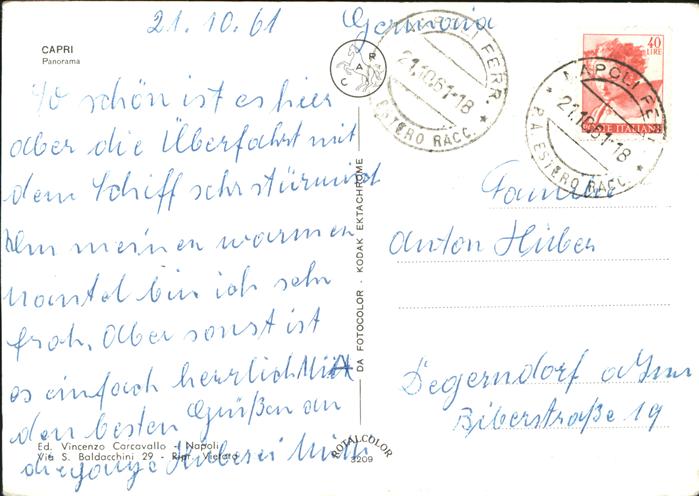 21.10.61 Germania
CAPRI
Panorama
So schön ist es hier
aber die Überfahrt mit
dem Schiff sehr stürmisch
Um meinen warmen
Mantel bin ich sehr
froh. Aber sonst ist
es einfach herrlich Mit
den besten Grüßen an
die ganze
Ed. Vincenzo Carcavallo - Napoli
Via S. Baldacchini 29 - Ripr. Vietata
DA FOTOCOLOR - KODAK EKTACHROME
ROTALCOLOR
3209
CAR
NAPOLI FERR.
21.10.61-18
ESTERO RACC.
40
LIRE
POSTE ITALIANE
NAPOLI FERR
21.10.61-18
P.A. ESTERO RACC.
Familie
Anton Huber
Degerndorf a/Inn
Biberstraße 19